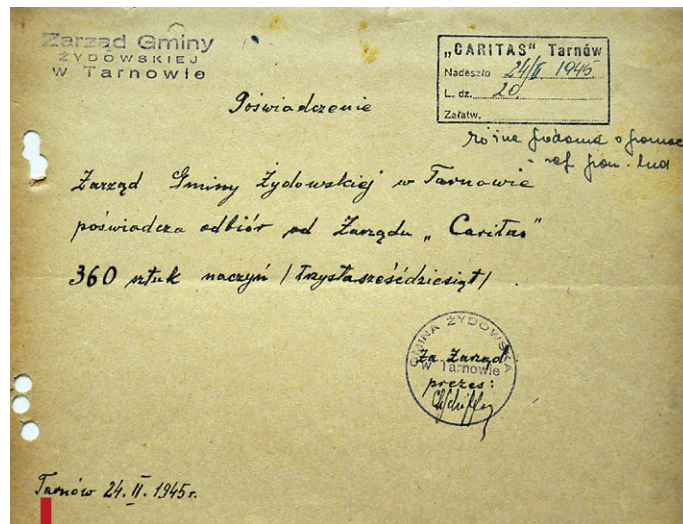 Zarząd Gminy
ŻYDOWSKIEJ
w Tarnowie
„CARITAS" Tarnów
Nadeszło 24/II 1945
L. dz. 20
Załatw.
Poświadczenie
różne podania o pomoc
Zarząd Gminy Żydowskiej w Tarnowie
poświadcza odbiór od Zarządu „Caritas"
360 sztuk naczyń /trzystasześćdziesiąt/.
GMINA ŻYDOWSKA
w Tarnowie
Za Zarząd
prezes:
Tarnów 24. II. 1945 r.